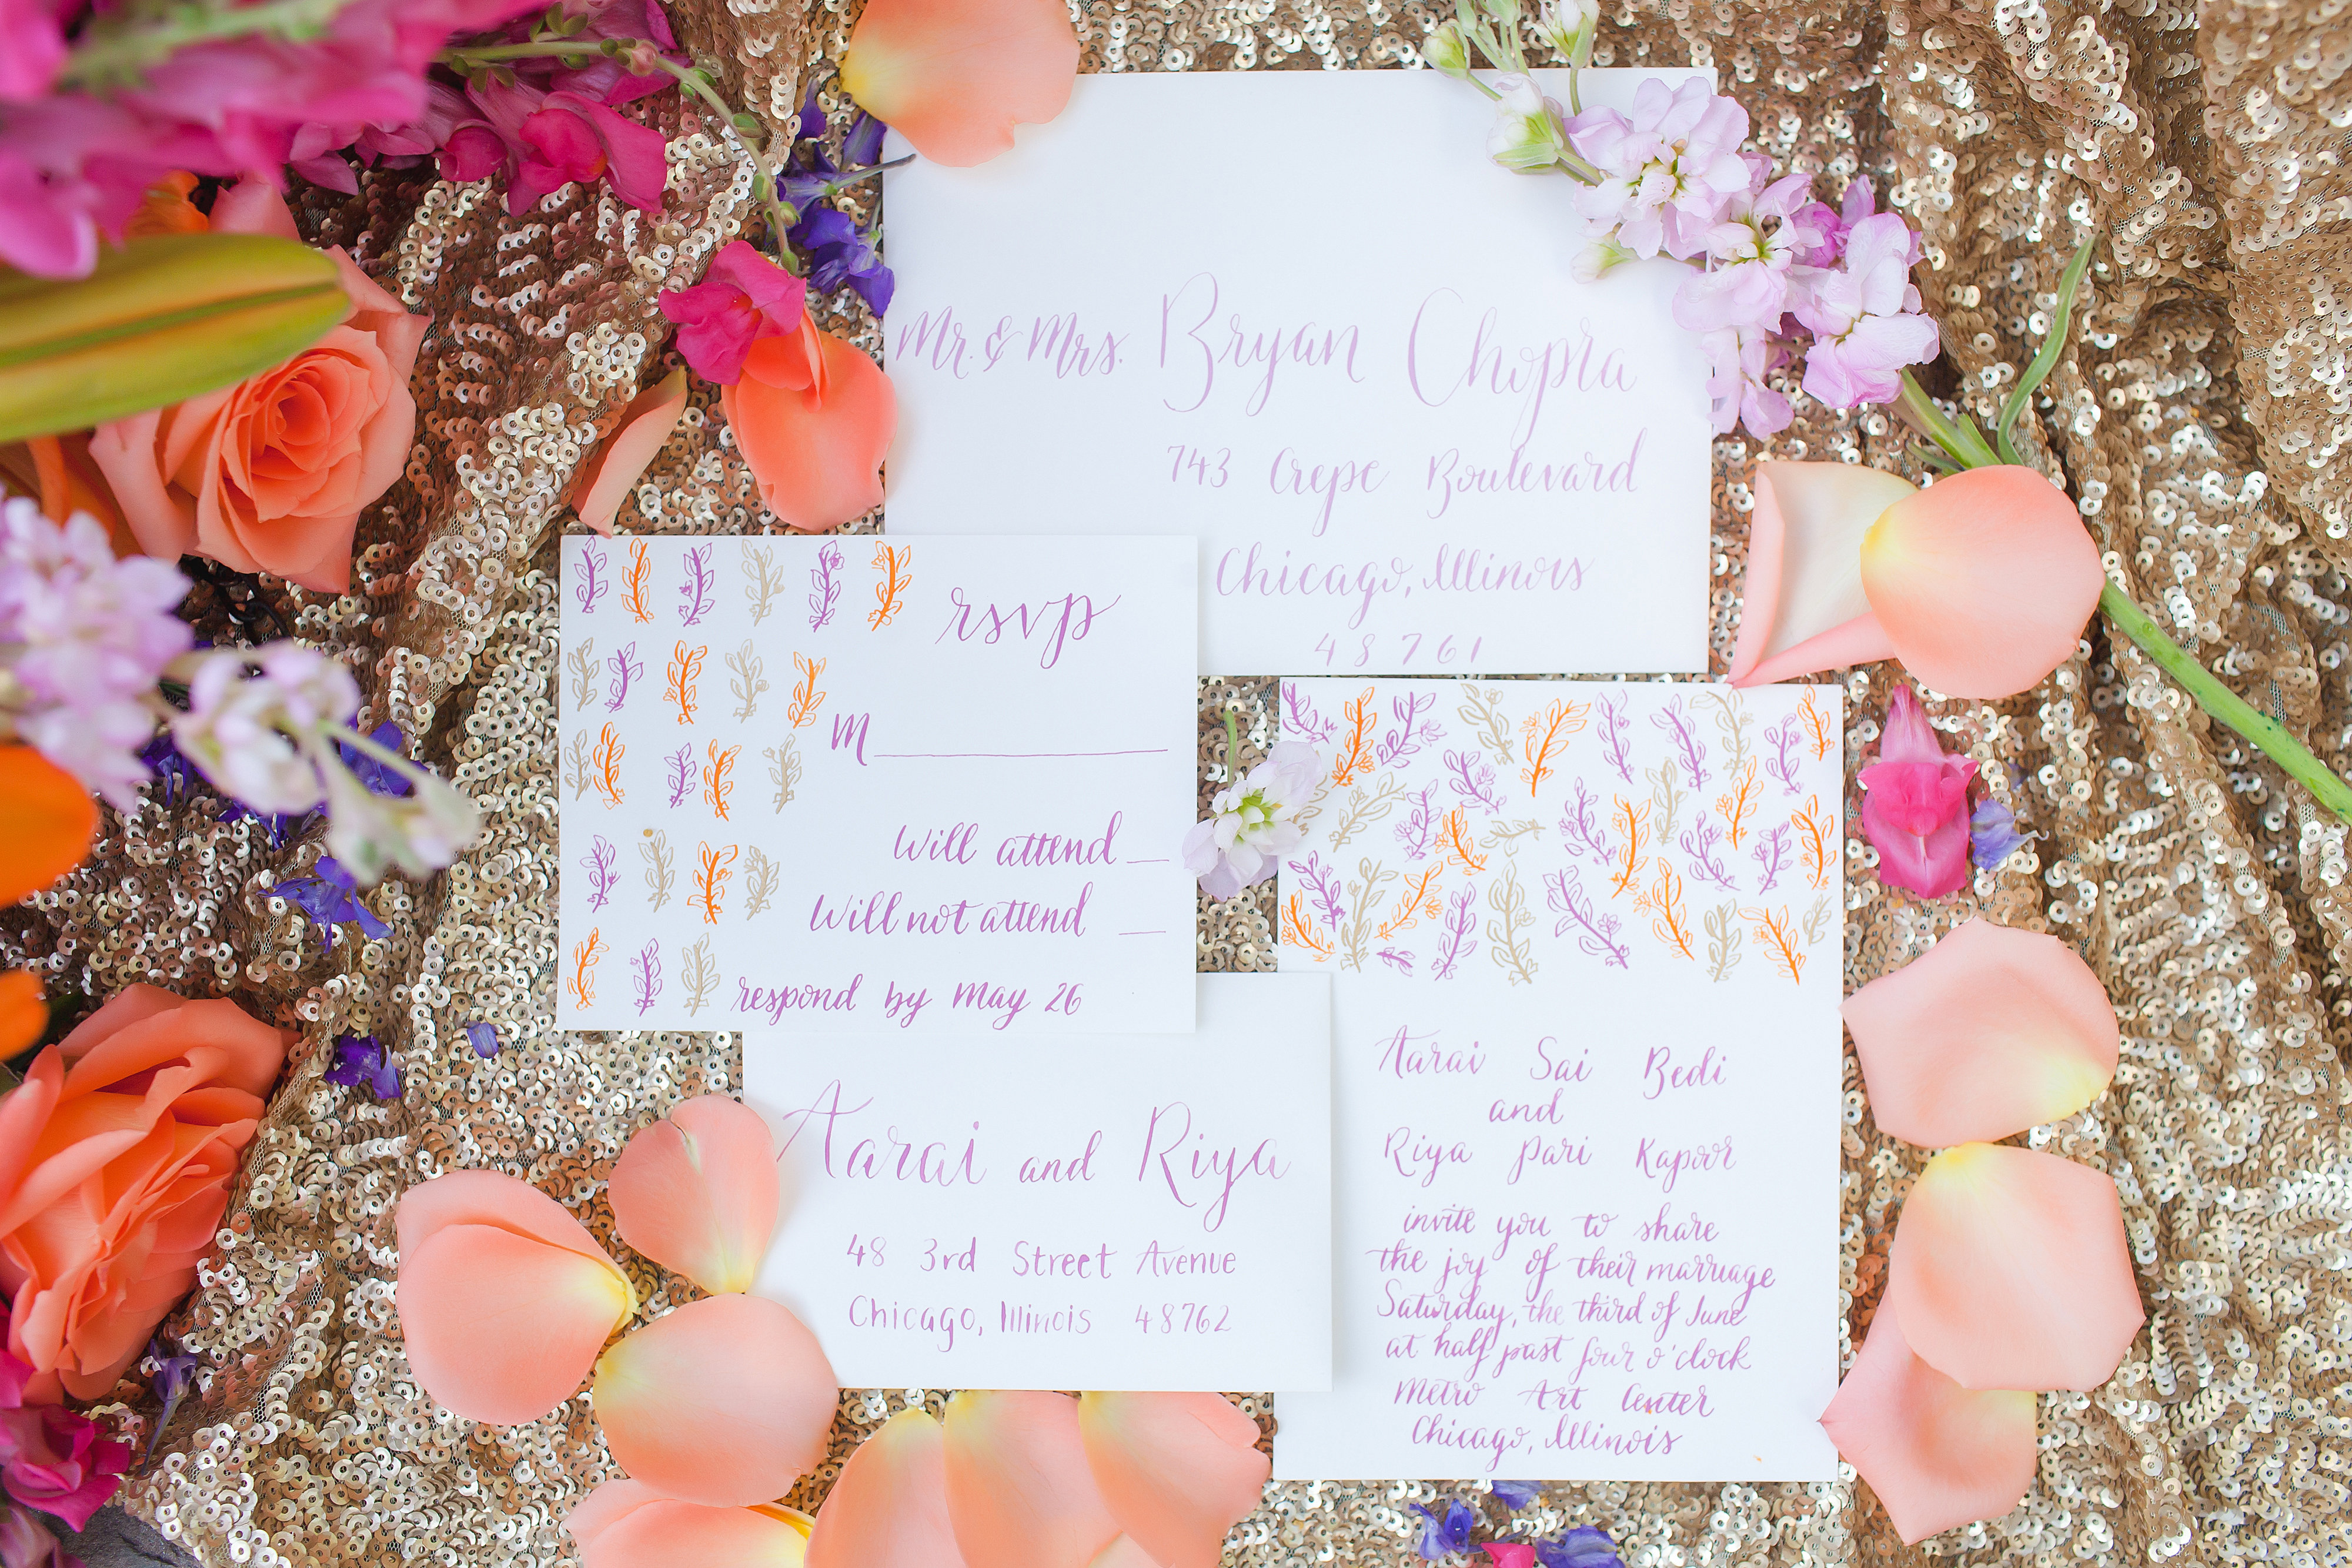 Mr. & Mrs. Bryan Chopra
743 Crepe Boulevard
Chicago, Illinois
48761
rsvp
M
will attend
will not attend
respond by may 26
Aarai and Riya
48 3rd Street Avenue
Chicago, Illinois 48762
Aarai Sai Bedi
and
Riya Pari Kapoor
invite you to share
the joy of their marriage
Saturday, the third of June
at half past four o'clock
Metro Art Center
Chicago, Illinois